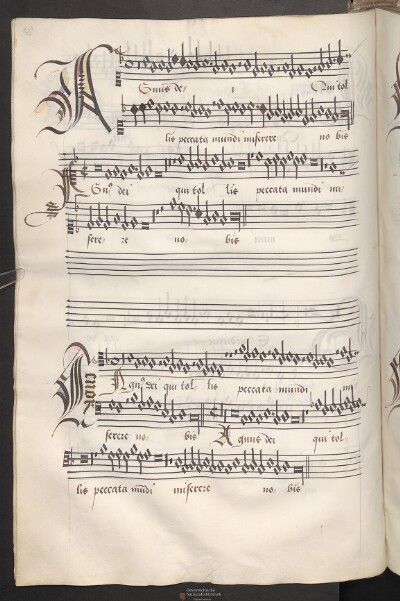 Agnus dei Qui tol
lis peccata mundi miserere no bis
Agn⁹ dei qui tol lis peccata mundi mi
sere re no bis
Agn⁹ dei qui tol lis peccata mundi mi
serere no bis Agnus dei qui tol
lis peccata mūdi miserere no bis